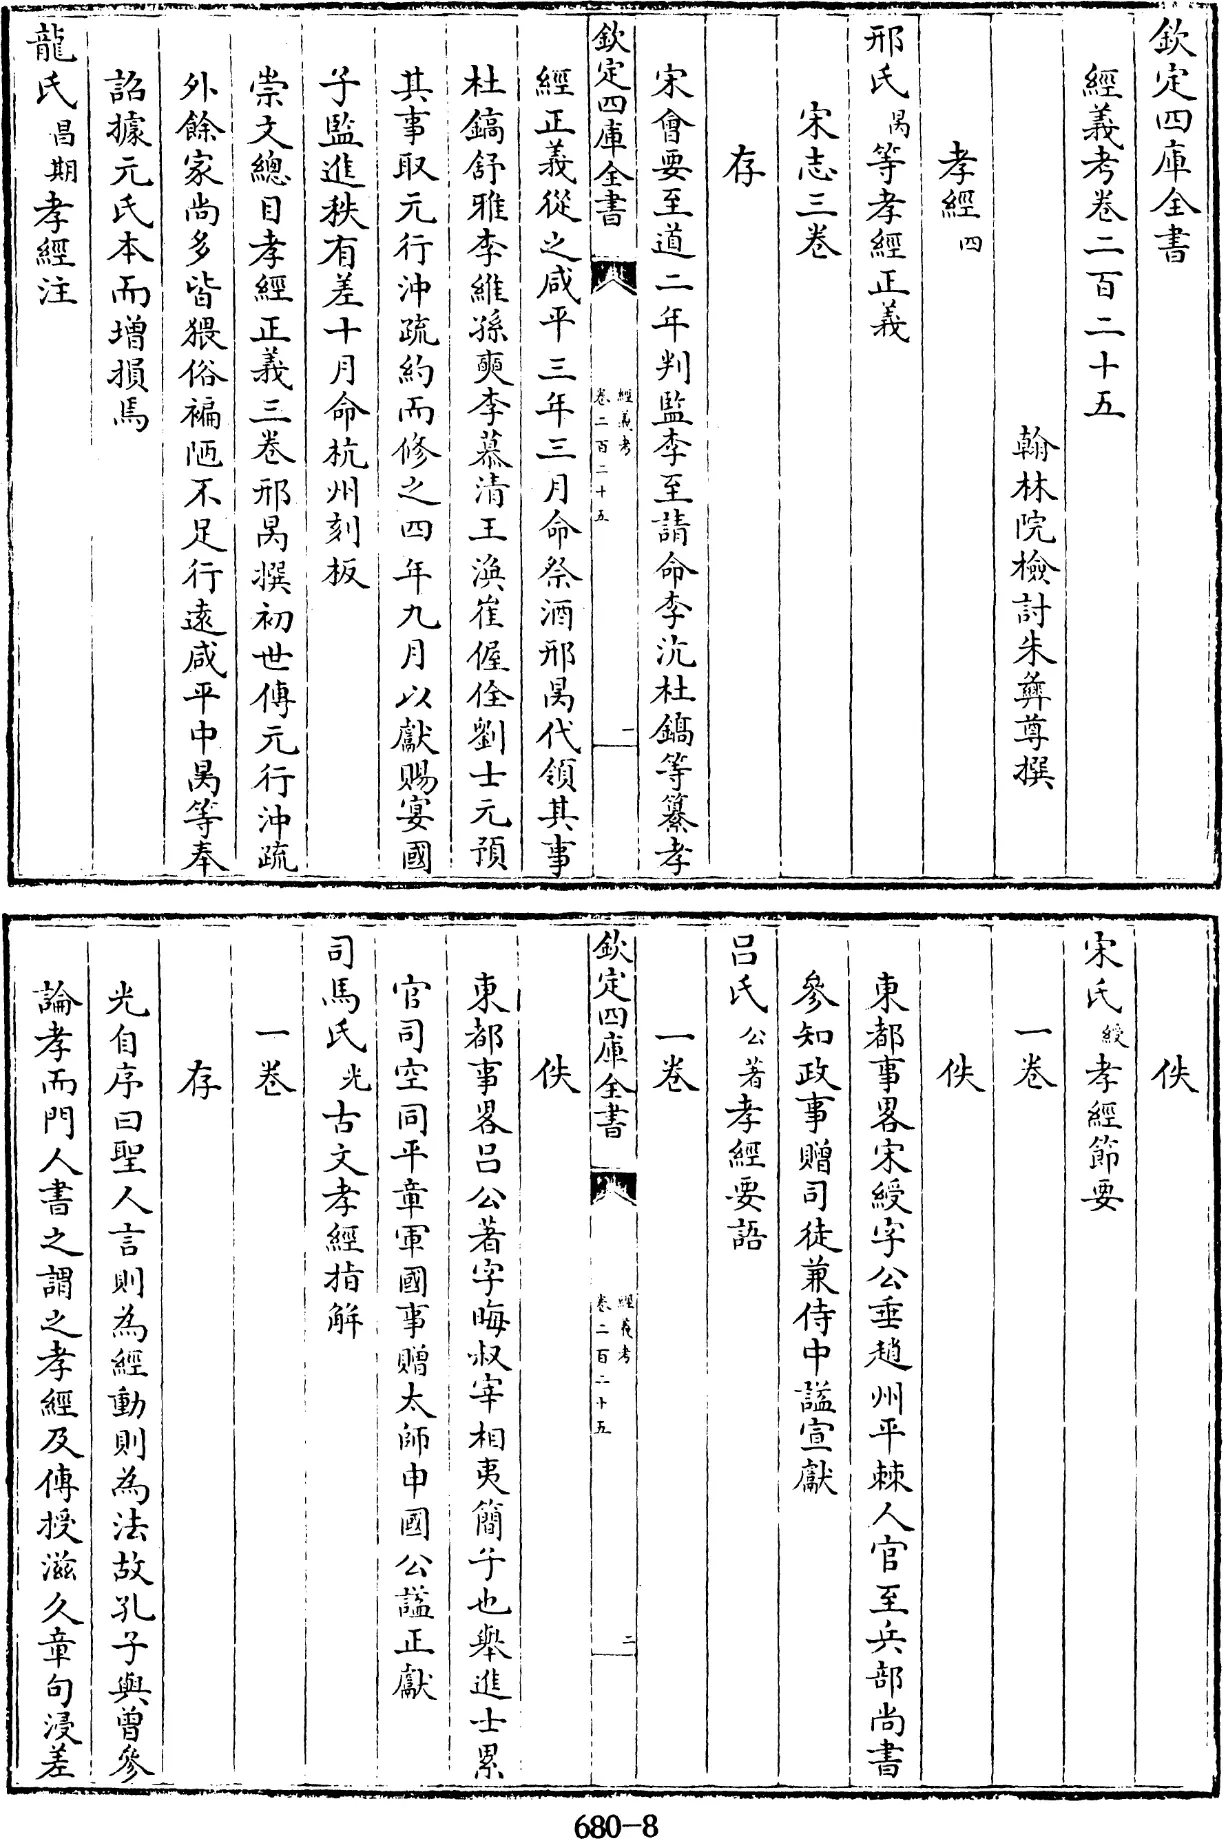 欽定四庫全書
經義考卷二百二十五
翰林院檢討朱彝尊撰
孝經四
邢氏昺等孝經正義
宋志三卷
存
宋會要至道二年判監李至請命李沆杜鎬等纂孝
欽定四庫全書 經義考卷二百二十五 一
經正義從之咸平三年三月命祭酒邢昺代領其事
杜鎬舒雅李維孫奭李慕清王渙崔偓佺劉士元預
其事取元行沖疏約而修之四年九月以獻賜宴國
子監進秩有差十月命杭州刻板
崇文總目孝經正義三卷邢昺撰初世傳元行沖疏
外餘家尚多皆猥俗褊陋不足行遠咸平中昺等奉
詔據元氏本而增損焉
龍氏昌期孝經注
佚
宋氏綬孝經節要
一卷
佚
東都事畧宋綬字公垂趙州平棘人官至兵部尚書
參知政事贈司徒兼侍中諡宣獻
呂氏公著孝經要語
一卷
欽定四庫全書 經義考卷二百二十五 二
佚
東都事畧呂公著字晦叔宰相夷簡子也舉進士累
官司空同平章軍國事贈太師申國公諡正獻
司馬氏光古文孝經指解
一卷
存
光自序曰聖人言則為經動則為法故孔子與曾參
論孝而門人書之謂之孝經及傳授滋久章句浸差
680-8